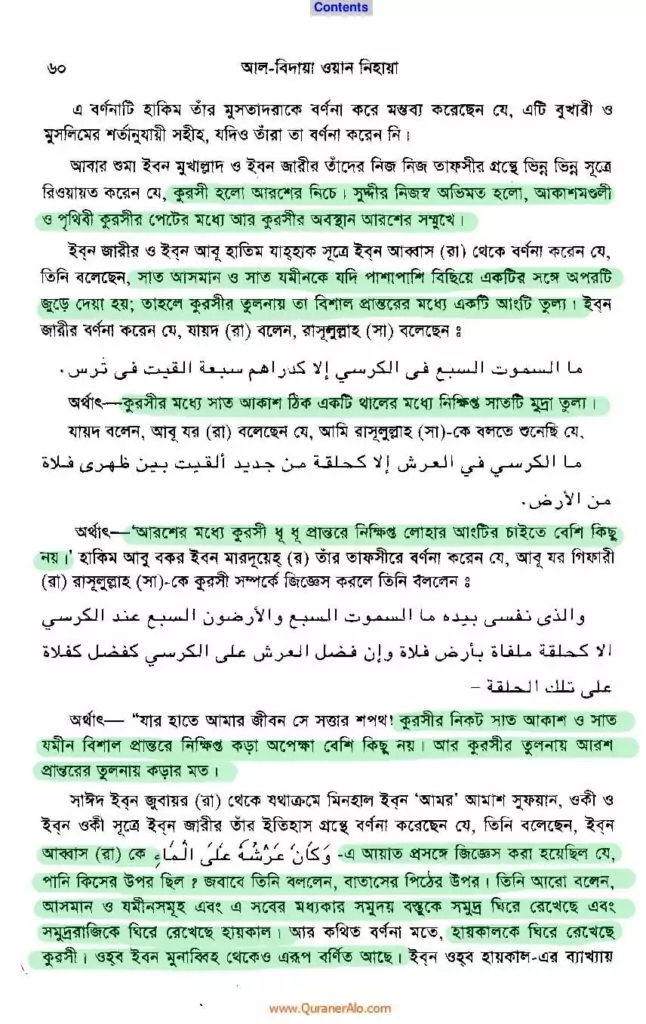 Contents
৬০ আল-বিদায়া ওয়ান নিহায়া
এ বর্ণনাটি হাকিম তাঁর মুসতাদরাকে বর্ণনা করে মন্তব্য করেছেন যে, এটি বুখারী ও
মুসলিমের শর্তানুযায়ী সহীহ, যদিও তাঁরা তা বর্ণনা করেন নি।
আবার শুমা ইবন মুখাল্লাদ ও ইবন জারীর তাঁদের নিজ নিজ তাফসীর গ্রন্থে ভিন্ন ভিন্ন সূত্রে
রিওয়ায়ত করেন যে, কুরসী হলো আরশের নিচে। সুদ্দীর নিজস্ব অভিমত হলো, আকাশমণ্ডলী
ও পৃথিবী কুরসীর পেটের মধ্যে আর কুরসীর অবস্থান আরশের সম্মুখে।
ইব্‌ন জারীর ও ইব্‌ন আবূ হাতিম যাহ্হাক সূত্রে ইব্‌ন আব্বাস (রা) থেকে বর্ণনা করেন যে,
তিনি বলেছেন, সাত আসমান ও সাত যমীনকে যদি পাশাপাশি বিছিয়ে একটির সঙ্গে অপরটি
জুড়ে দেয়া হয়; তাহলে কুরসীর তুলনায় তা বিশাল প্রান্তরের মধ্যে একটি আংটি তুল্য। ইব্‌ন
জারীর বর্ণনা করেন যে, যায়দ (রা) বলেন, রাসূলুল্লাহ (সা) বলেছেন ঃ
ما السموت السبع فى الكرسي إلا كدراهم سبعة القيت فى ترس.
অর্থাৎ—কুরসীর মধ্যে সাত আকাশ ঠিক একটি থালের মধ্যে নিক্ষিপ্ত সাতটি মুদ্রা তুল্য।
যায়দ বলেন, আবূ যর (রা) বলেছেন যে, আমি রাসূলুল্লাহ (সা)-কে বলতে শুনেছি যে,
ما الكرسي في العرش إلا كحلقة من جديد ألقيت بين ظهرى فلاة
من الأرض.
অর্থাৎ—‘আরশের মধ্যে কুরসী ধূ ধূ প্রান্তরে নিক্ষিপ্ত লোহার আংটির চাইতে বেশি কিছু
নয়।’ হাকিম আবু বকর ইবন মারদূয়েহ্ (র) তাঁর তাফসীরে বর্ণনা করেন যে, আবূ যর গিফারী
(রা) রাসূলুল্লাহ (সা)-কে কুরসী সম্পর্কে জিজ্ঞেস করলে তিনি বললেন ঃ
والذى نفسى بيده ما السموت السبع والأرضون السبع عند الكرسي
الا كحلقة ملفاة بأرض فلاة وإن فضل العرش على الكرسي كفضل كفلاة
على تلك الحلقة –
অর্থাৎ— “যার হাতে আমার জীবন সে সত্তার শপথ! কুরসীর নিকট সাত আকাশ ও সাত
যমীন বিশাল প্রান্তরে নিক্ষিপ্ত কড়া অপেক্ষা বেশি কিছু নয়। আর কুরসীর তুলনায় আরশ
প্রান্তরের তুলনায় কড়ার মত।
সাঈদ ইব্‌ন জুবায়র (রা) থেকে যথাক্রমে মিনহাল ইব্‌ন ‘আমর’ আমাশ সুফয়ান, ওকী ও
ইব্‌ন ওকী সূত্রে ইব্‌ন জারীর তাঁর ইতিহাস গ্রন্থে বর্ণনা করেছেন যে, তিনি বলেছেন, ইব্‌ন
আব্বাস (রা) কে وَكَانَ عَرْشُهُ عَلَى الْمَاءِ -এ আয়াত প্রসঙ্গে জিজ্ঞেস করা হয়েছিল যে,
পানি কিসের উপর ছিল ? জবাবে তিনি বললেন, বাতাসের পিঠের উপর। তিনি আরো বলেন,
আসমান ও যমীনসমূহ এবং এ সবের মধ্যকার সমুদয় বস্তুকে সমুদ্র ঘিরে রেখেছে এবং
সমুদ্ররাজিকে ঘিরে রেখেছে হায়কাল। আর কথিত বর্ণনা মতে, হায়কালকে ঘিরে রেখেছে
কুরসী। ওহ্‌ব ইবন মুনাব্বিহ থেকেও এরূপ বর্ণিত আছে। ইব্‌ন ওহ্‌ব হায়কাল-এর ব্যাখ্যায়
www.QuranerAlo.com